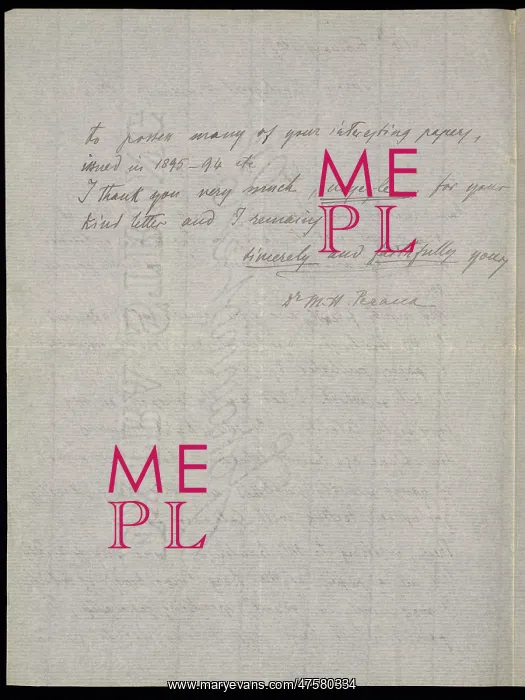 to possess many of your interesting papers,
issued in 1895-94 etc
I thank you very much for your
kind letter and I remain
sincerely and faithfully yours
Dr M. H.
ME
PL
ME
PL
www.maryevans.com/47580334